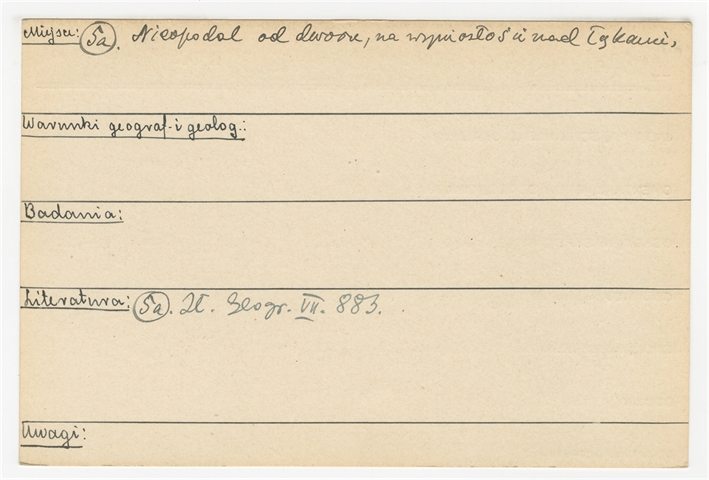 Miejsce: 5a. Nieopodal od dworu, na wyniosłości nad łąkami.
Warunki geograf. i geolog.:
Badania:
Literatura: 5a. Sł. Geogr. VII. 883.
Uwagi: